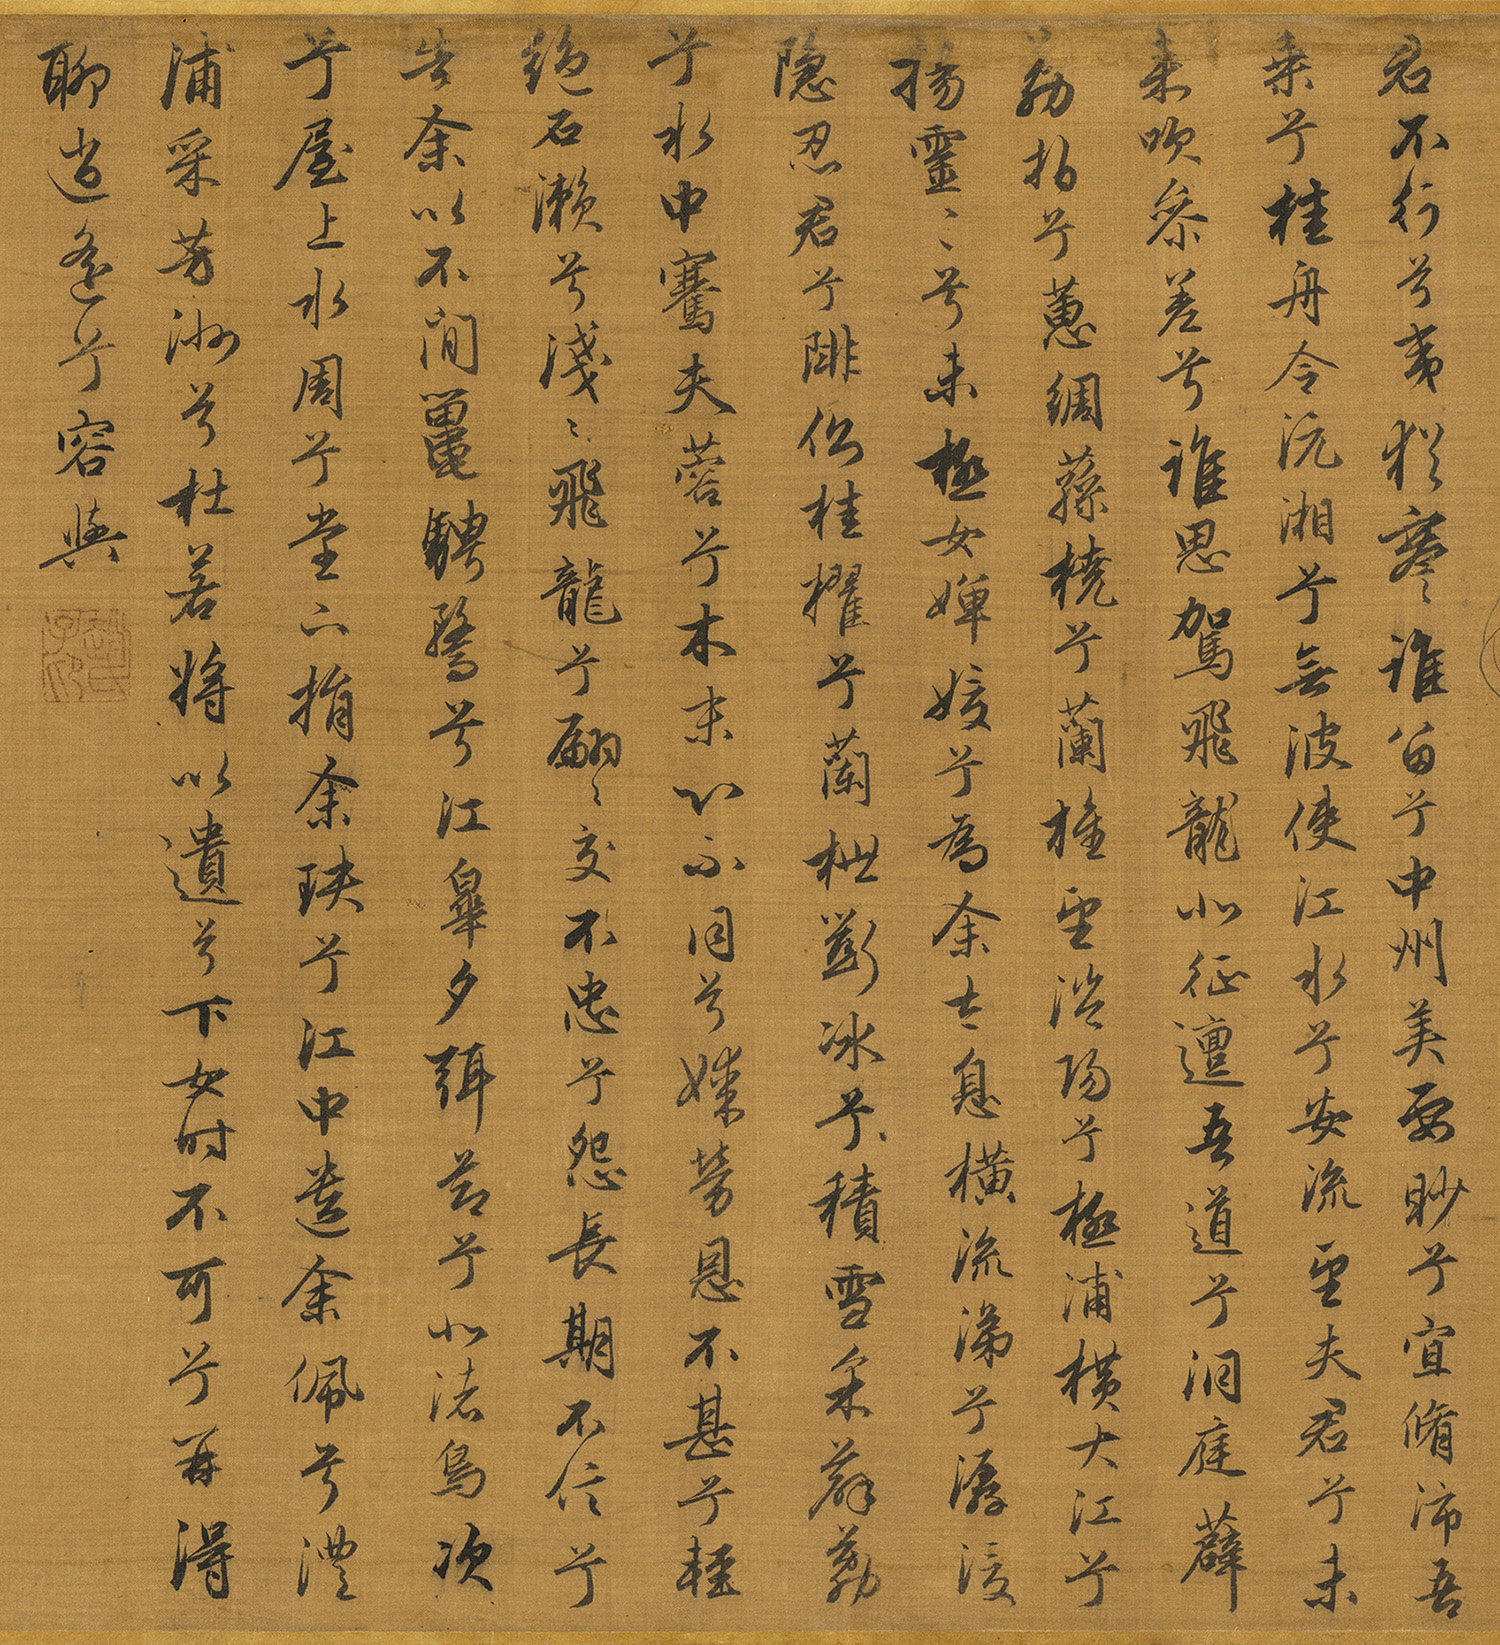 君不行兮夷猶蹇誰留兮中州美要眇兮宜脩沛吾
乘兮桂舟令沅湘兮無波使江水兮安流望夫君兮未
來吹參差兮誰思駕飛龍北征邅吾道兮洞庭薜
荔拍兮蕙綢蓀橈兮蘭旌望涔陽兮極浦橫大江兮
揚靈〻兮未極女嬋媛兮為余太息橫流涕兮潺湲
隱忍君兮陫側桂櫂兮蘭枻斲冰兮積雪采薜荔
兮水中騫夫蓉兮木末心不同兮媒勞恩不甚兮輕
絕石瀨兮淺〻飛龍兮翩〻交不忠兮怨長期不信兮
告余以不閒鼂騁騖兮江皋夕弭節兮北渚鳥次
兮屋上水周兮堂下捐余玦兮江中遺余佩兮澧
浦采芳洲兮杜若將以遺兮下女時不可兮再得
聊逍遙兮容與
趙氏子昂